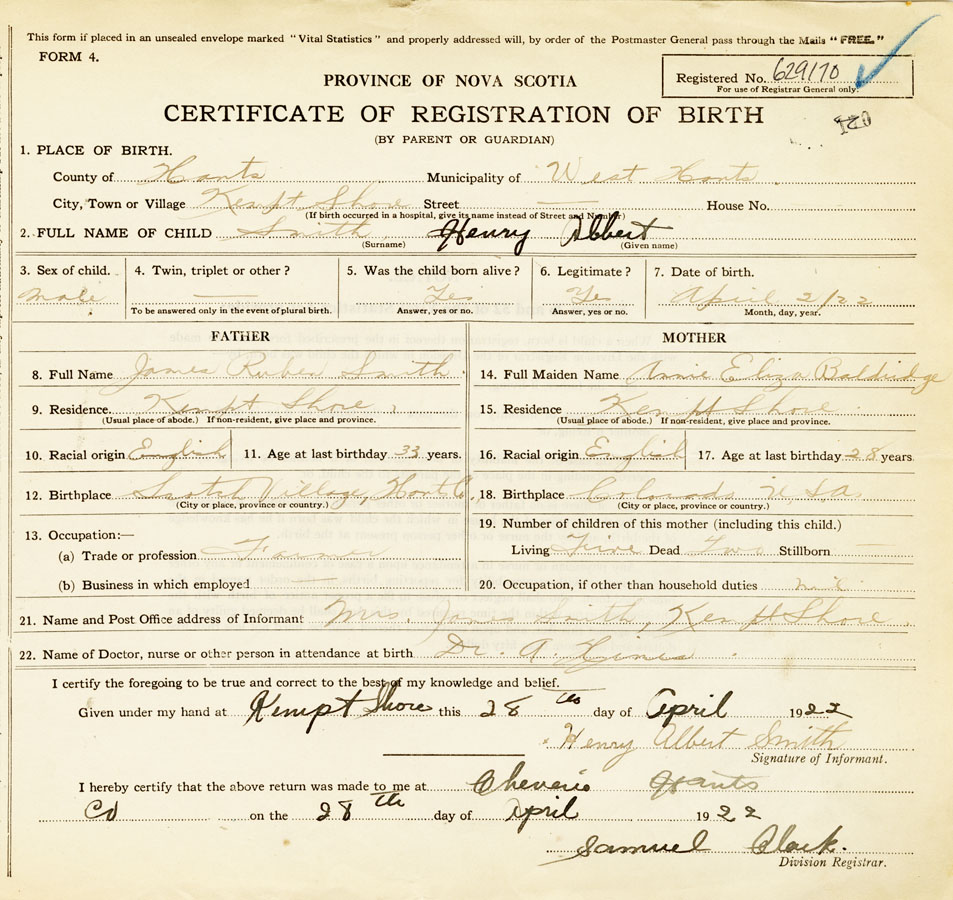 This form if placed in an unsealed envelope marked "Vital Statistics" and properly addressed will, by order of the Postmaster General pass through the Mails "FREE."
FORM 4.
PROVINCE OF NOVA SCOTIA
Registered No. 629170
For use of Registrar General only.
CERTIFICATE OF REGISTRATION OF BIRTH
(BY PARENT OR GUARDIAN)
1. PLACE OF BIRTH.
County of Hants Municipality of West Hants
City, Town or Village Kempt Shore Street — House No.
(If birth occurred in a hospital, give its name instead of Street and Number)
2. FULL NAME OF CHILD Smith Henry Albert
(Surname) (Given name)
3. Sex of child. 4. Twin, triplet or other? 5. Was the child born alive? 6. Legitimate? 7. Date of birth.
Male — Yes Yes April 2/22
To be answered only in the event of plural birth. Answer, yes or no. Answer, yes or no. Month, day, year.
FATHER MOTHER
8. Full Name James Ruben Smith 14. Full Maiden Name Annie Eliza Baldridge
9. Residence. Kempt Shore 15. Residence Kempt Shore
(Usual place of abode.) If non-resident, give place and province. (Usual place of abode.) If non-resident, give place and province.
10. Racial origin English 11. Age at last birthday 33 years. 16. Racial origin English 17. Age at last birthday 28 years
12. Birthplace Scotch Village, Hant Co. 18. Birthplace Colorado U S A
(City or place, province or country.) (City or place, province or country.)
13. Occupation:— 19. Number of children of this mother (including this child.)
(a) Trade or profession Farmer Living Five Dead Two Stillborn —
(b) Business in which employed — 20. Occupation, if other than household duties
21. Name and Post Office address of Informant Mrs. James Smith, Kempt Shore.
22. Name of Doctor, nurse or other person in attendance at birth Dr. A.
I certify the foregoing to be true and correct to the best of my knowledge and belief.
Given under my hand at Kempt Shore this 28 th day of April 1922
Henry Albert Smith
Signature of Informant.
I hereby certify that the above return was made to me at Cheverie Hants
Co on the 28th day of April 1922
Samuel Clark.
Division Registrar.